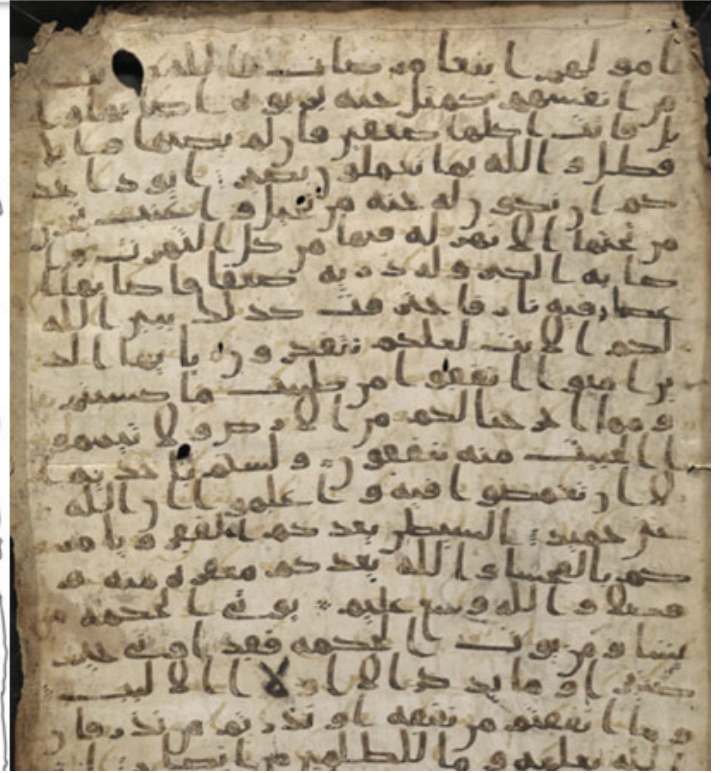 امولهم ابتغا مرضات الله و
من انفسهم كمثل جنه بربوه اصابها وا
بل فاتت اكلها ضعفين فان لم يصبها وابل
فطل و الله بما تعملون بصير ايود احد
كم ان تكون له جنه من نخيل و اعنب تجري
من تحتها الانهر له فيها من كل الثمرت وا
صابه الكبر وله ذريه ضعفا فاصابها ا
عصار فيه نار فاحترقت كذلك يبين الله
لكم الايت لعلكم تتفكرون يايها الذ
ين امنوا انفقوا من طيبت ما كسبتم
و مما اخرجنا لكم من الارض ولا تيممو
ا الخبيث منه تنفقون ولستم باخذيه ا
لا ان تغمضوا فيه و اعلموا ان الله
غني حميد الشيطن يعدكم الفقر ويامر
كم بالفحشا و الله يعدكم مغفره منه و
فضلا و الله وسع عليم يوتي الحكمه من
يشا ومن يوت الحكمه فقد اوتي خير
كثيرا و ما يذكر الا اولا الالبب
و ما انفقتم من نفقه او نذرتم من نذر فان
الله يعلمه و ما للظلمين من انصار ان